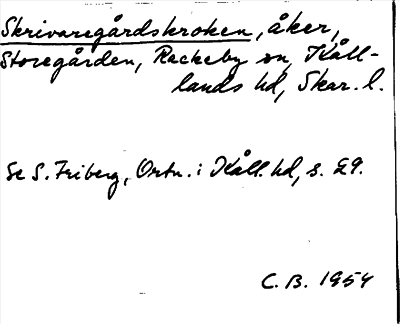 Skrivaregårdskroken, åker,
Storegården, Rackeby sn, Kål-
lands hd, Skar. l.
Se S. Friberg, Ortn. i Kåll. hd, s. 29.
C. B. 1954